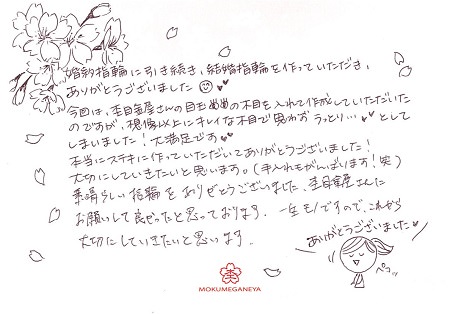 婚約指輪に引き続き、結婚指輪を作っていただき、
ありがとうございました
今回は、杢目金屋さんの目の木目を入れて作成していただいた
のですが、想像以上にキレイな木目で思わずうっとり…として
しまいました!大満足です
本当にステキに作っていただいてありがとうございました!
大切にしていきたいと思います。(手入れもがんばります!笑)
素晴らしい指輪をありがとうございました。杢目金屋さんに
お願いして良かったと思っております。一生モノですので、これから
大切にしていきたいと思います。
ありがとうございました
ペコッ
MOKUMEGANEYA